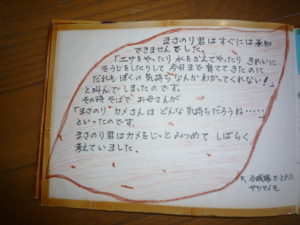 まさのり君はすぐには承知
できませんでした。
「エサをやったり 水をかえてやったり きれいに
そうじをしたりして 今日まで 育ててきたのに
だれも ぼくの気持ちなんか わかってくれない！」
と叫んでしまったのです。
その時 そばで お母さんが
「まさのり カメさんは どんな気持ちだろうね……」
といったのです。
まさのり君はカメをじっとみつめて しばらく
考えていました。
でとれた
サツマイモ